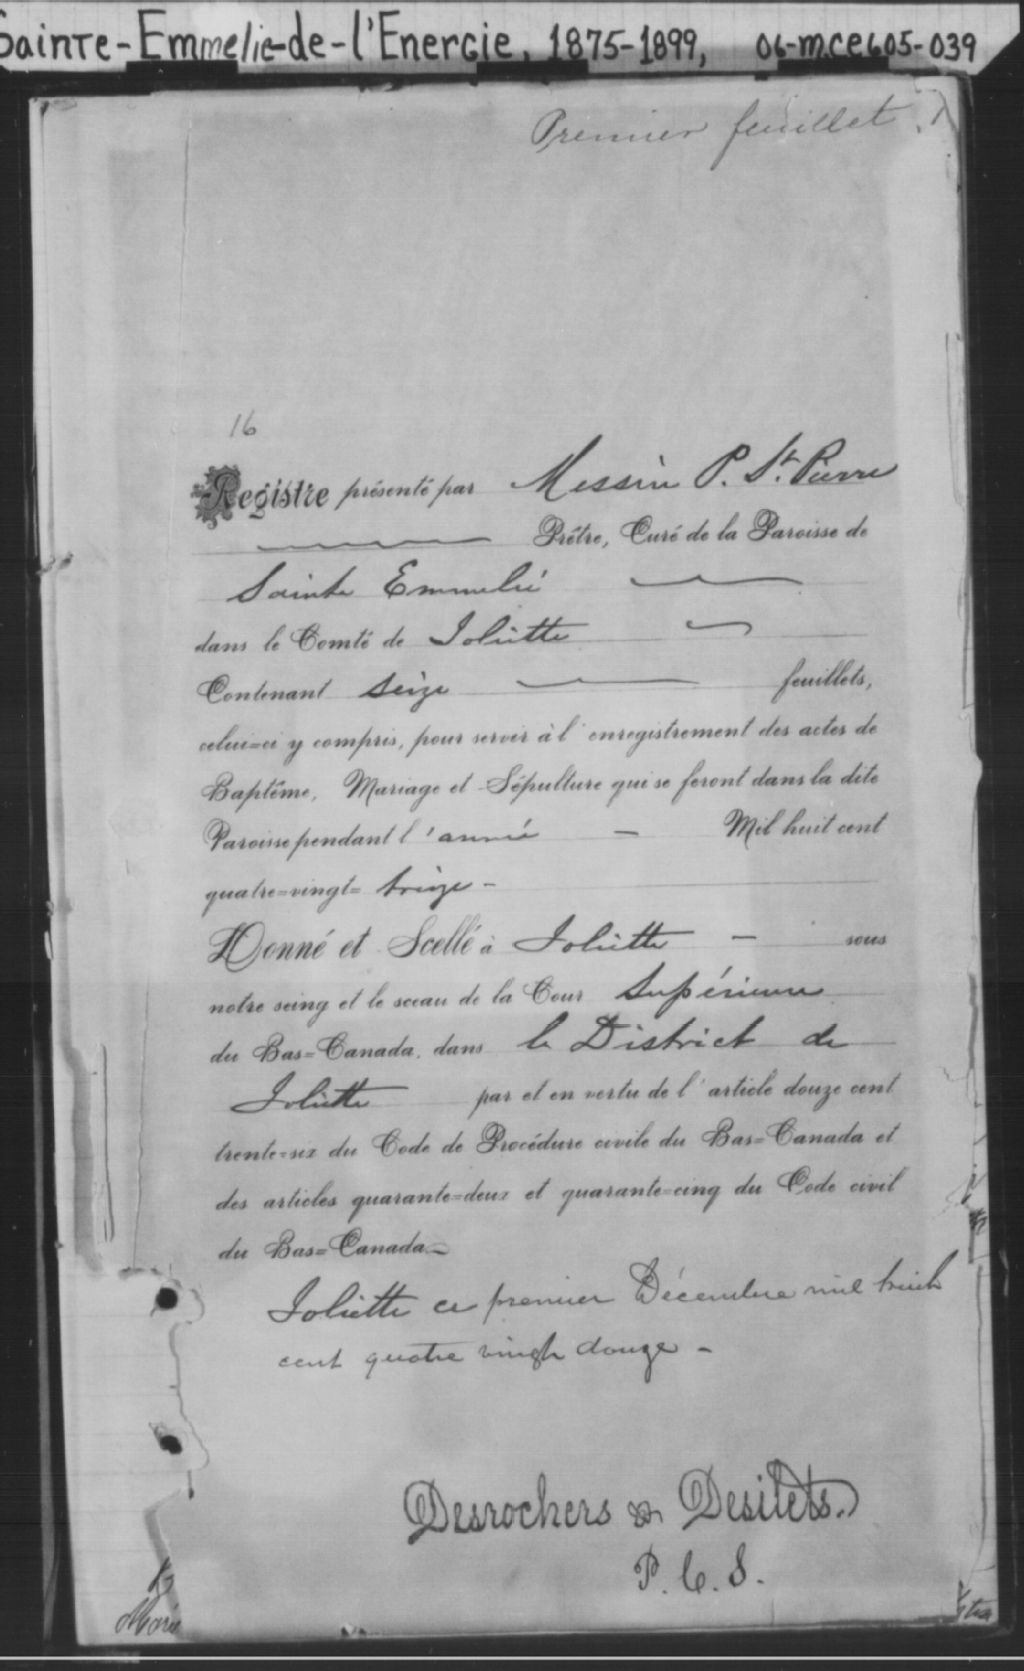 Sainte-Emmelie-de-l'Energie, 1875-1899, 06-MCE605-039
Premier feuillet.
16
Registre présenté par Messire P. St. Pierre
Prêtre, Curé de la Paroisse de
Sainte Emmelie
dans le Comté de Joliette
Contenant seize feuillets,
celui=ci y compris, pour servir à l'enregistrement des actes de
Baptême, Mariage et Sépulture qui se feront dans la dite
Paroisse pendant l'année - Mil huit cent
quatre=vingt= treize -
Donné et Scellé à Joliette - sous
notre seing et le sceau de la Cour Supérieure
du Bas=Canada, dans le District de
Joliette par et en vertu de l'article douze cent
trente=six du Code de Procédure civile du Bas=Canada et
des articles quarante=deux et quarante=cinq du Code civil
du Bas=Canada.
Joliette ce premier Décembre mil huit
cent quatre vingt douze -
Desrochers & Desilets.
P. C. S.
Marie